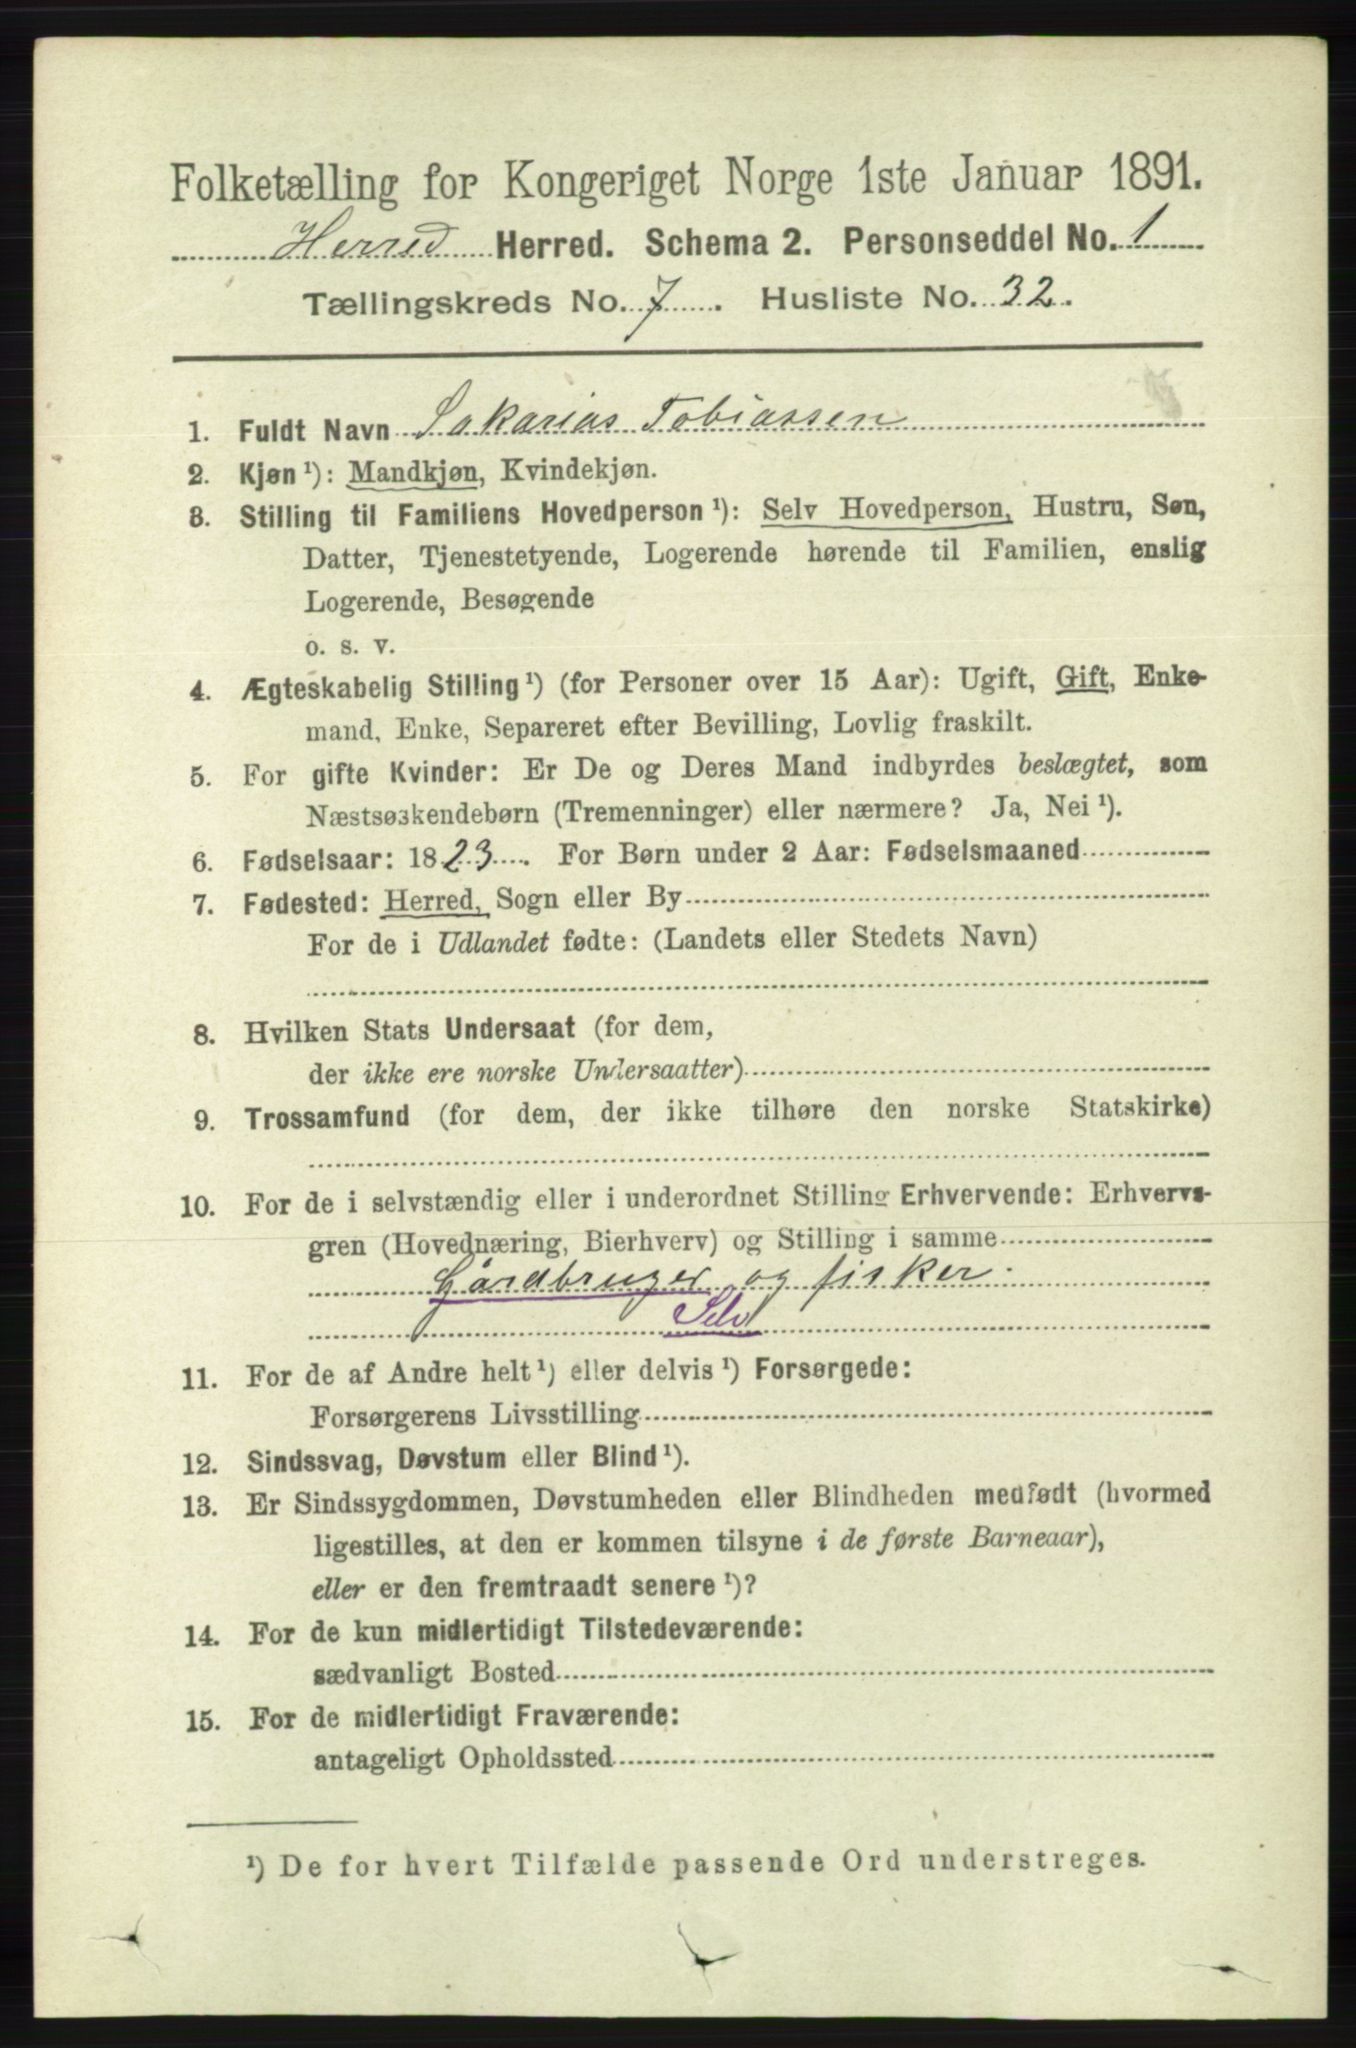 Folketælling for Kongeriget Norge 1ste Januar 1891.
Herred Herred. Schema 2. Personseddel No. 1
Tællingskreds No. 7. Husliste No. 32.
1. Fuldt Navn Sakarias Tobiassen
2. Kjøn ¹): Mandkjøn, Kvindekjøn.
3. Stilling til Familiens Hovedperson ¹): Selv Hovedperson, Hustru, Søn,
Datter, Tjenestetyende, Logerende hørende til Familien, enslig
Logerende, Besøgende
o. s. v.
4. Ægteskabelig Stilling ¹) (for Personer over 15 Aar): Ugift, Gift, Enke-
mand, Enke, Separeret efter Bevilling, Lovlig fraskilt.
5. For gifte Kvinder: Er De og Deres Mand indbyrdes beslægtet, som
Næstsøskendebørn (Tremenninger) eller nærmere? Ja, Nei ¹).
6. Fødselsaar: 1823. For Børn under 2 Aar: Fødselsmaaned
7. Fødested: Herred, Sogn eller By
For de i Udlandet fødte: (Landets eller Stedets Navn)
8. Hvilken Stats Undersaat (for dem,
der ikke ere norske Undersaatter)
9. Trossamfund (for dem, der ikke tilhøre den norske Statskirke)
10. For de i selvstændig eller i underordnet Stilling Erhvervende: Erhvervs-
gren (Hovednæring, Bierhverv) og Stilling i samme
Gårdbruger og fisker.
Selv
11. For de af Andre helt ¹) eller delvis ¹) Forsørgede:
Forsørgerens Livsstilling
12. Sindssvag, Døvstum eller Blind ¹).
13. Er Sindssygdommen, Døvstumheden eller Blindheden medfødt (hvormed
ligestilles, at den er kommen tilsyne i de første Barneaar),
eller er den fremtraadt senere ¹)?
14. For de kun midlertidigt Tilstedeværende:
sædvanligt Bosted
15. For de midlertidigt Fraværende:
antageligt Opholdssted
¹) De for hvert Tilfælde passende Ord understreges.